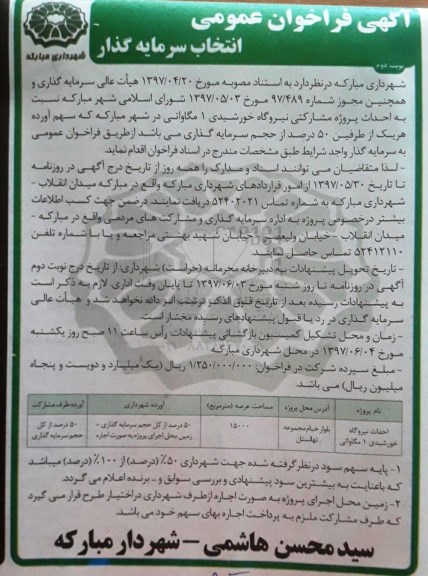 آگهی فراخوان عمومی
انتخاب سرمایه گذار
شهرداری مبارکه
نوبت دوم
شهرداری مبارکه درنظردارد به استناد مصوبه مورخ ۱۳۹۷/۰۴/۲۰ هیأت عالی سرمایه گذاری و
همچنین مجوز شماره ۹۷/۴۸۹ مورخ ۱۳۹۷/۰۵/۰۳ شورای اسلامی شهر مبارکه نسبت
به احداث پروژه مشارکتی نیروگاه خورشیدی ۱ مگاواتی در شهر مبارکه که سهم آورده
هریک از طرفین ۵۰ درصد از حجم سرمایه گذاری می باشد ازطریق فراخوان عمومی
به سرمایه گذار واجد شرایط طبق مشخصات مندرج در اسناد فراخوان اقدام نماید.
- لذا متقاضیان می توانند اسناد و مدارک را همه روز از تاریخ درج آگهی در روزنامه
تا تاریخ ۱۳۹۷/۰۵/۳۰ از امور قراردادهای شهرداری مبارکه واقع در مبارکه میدان انقلاب -
شهرداری مبارکه به شماره تماس ۵۲۴۰۲۰۲۱ دریافت نمایند. درضمن جهت کسب اطلاعات
بیشتر درخصوص پروژه به اداره سرمایه گذاری و مشارکت های مردمی واقع در مبارکه -
میدان انقلاب - خیابان ولیعصر - خیابان شهید بهشتی مراجعه و یا با شماره تلفن
۵۲۴۱۲۱۱۰ تماس حاصل نمایند.
- تاریخ تحویل پیشنهادات به دبیرخانه محرمانه (حراست) شهرداری، از تاریخ درج نوبت دوم
آگهی در روزنامه تا روز شنبه مورخ ۱۳۹۷/۰۶/۰۳ تا پایان وقت اداری. لازم به ذکر است
به پیشنهادات رسیده بعد از تاریخ فوق الذکر ترتیب اثر داده نخواهد شد و هیأت عالی
سرمایه گذاری در رد یا قبول پیشنهادهای رسیده مختار است.
- زمان و محل تشکیل کمیسیون بازگشائی پیشنهادات: رأس ساعت ۱۱ صبح روز یکشنبه
مورخ ۱۳۹۷/۰۶/۰۴ در محل شهرداری مبارکه
- مبلغ سپرده شرکت در فراخوان: ۱/۲۵۰/۰۰۰/۰۰۰ ریال (یک میلیارد و دویست و پنجاه
میلیون ریال) می باشد.
نام پروژه آدرس محل پروژه مساحت عرصه (مترمربع) آورده شهرداری آورده طرف مشارکت
احداث نیروگاه خورشیدی ۱ مگاواتی بلوار خیام مجموعه نهالستان ۱۵۰۰۰ ۵۰ درصد از کل حجم سرمایه گذاری - زمین محل اجرای پروژه به صورت اجاره ۵۰ درصد از کل حجم سرمایه گذاری
۱- پایه سهم سود درنظر گرفته شده جهت شهرداری ۵۰٪ (درصد) از ۱۰۰٪ (درصد) میباشد
که باعنایت به بیشترین سود پیشنهادی و بررسی سوابق و... برنده اعلام می گردد.
۲- زمین محل اجرای پروژه به صورت اجاره ازطرف شهرداری دراختیار طرح قرار می گیرد
که طرف مشارکت ملزم به پرداخت اجاره بهای سهم خود می باشد.
سید محسن هاشمی - شهردار مبارکه